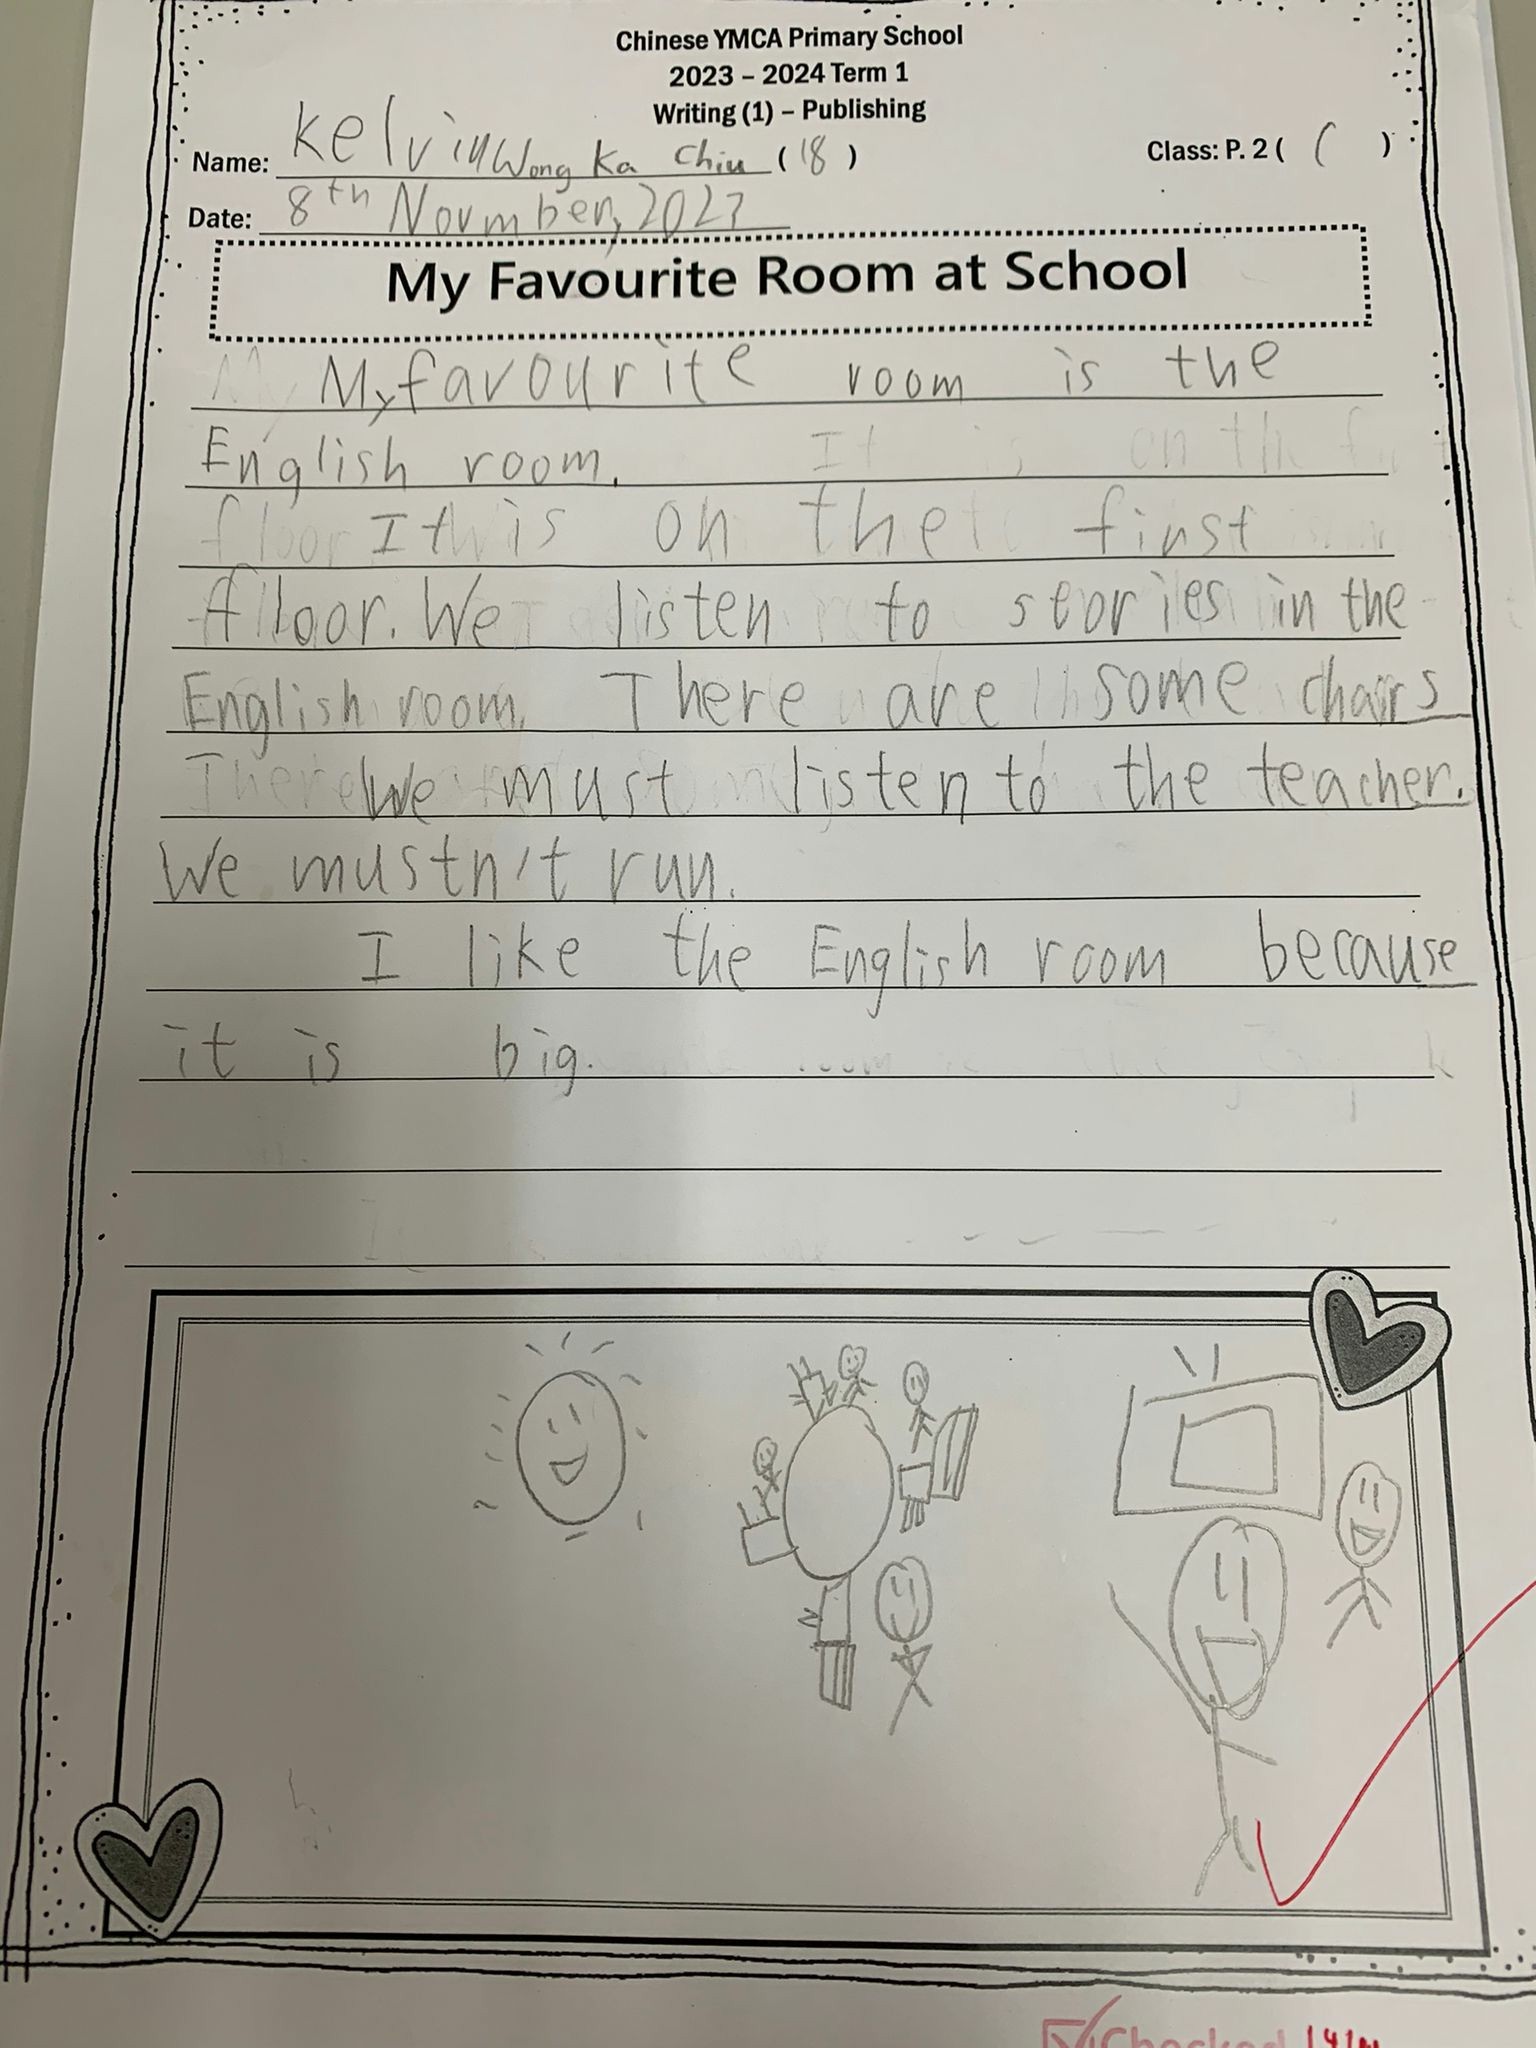 Chinese YMCA Primary School
2023 – 2024 Term 1
Writing (1) – Publishing
Name: Kelvin Wong Ka Chiu (18) Class: P. 2 ( ( )
Date: 8th Novmber, 2023
My Favourite Room at School
My favourite room is the
English room.
It is on the first
floor. We listen to stories in the
English room. There are some chairs
We must listen to the teacher.
We mustn't run.
I like the English room because
it is big.
Checked